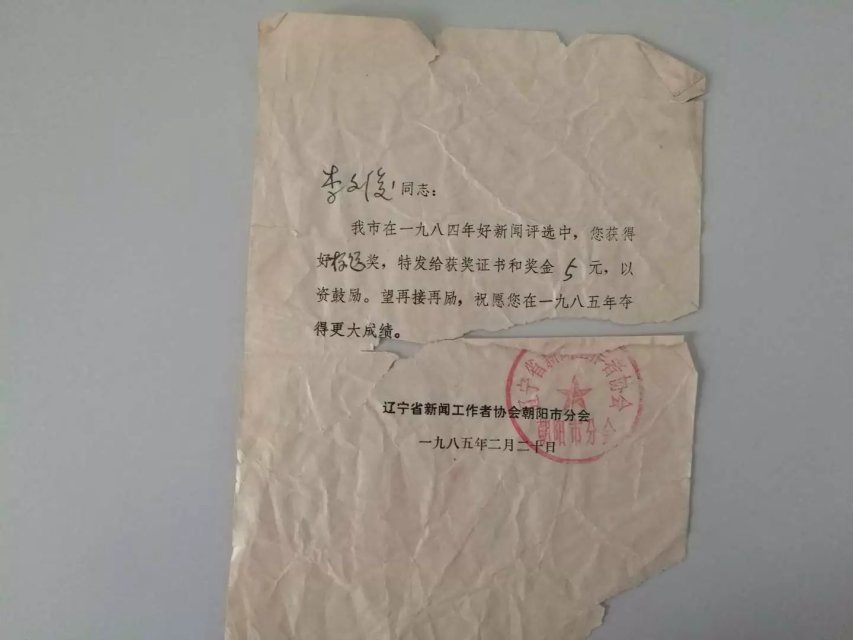 李文俊同志:
我市在一九八四年好新闻评选中,您获得
好报道奖,特发给获奖证书和奖金5元,以
资鼓励。望再接再励,祝愿您在一九八五年夺
得更大成绩。
辽宁省新闻工作者协会
朝阳市分会
辽宁省新闻工作者协会朝阳市分会
一九八五年二月二十日